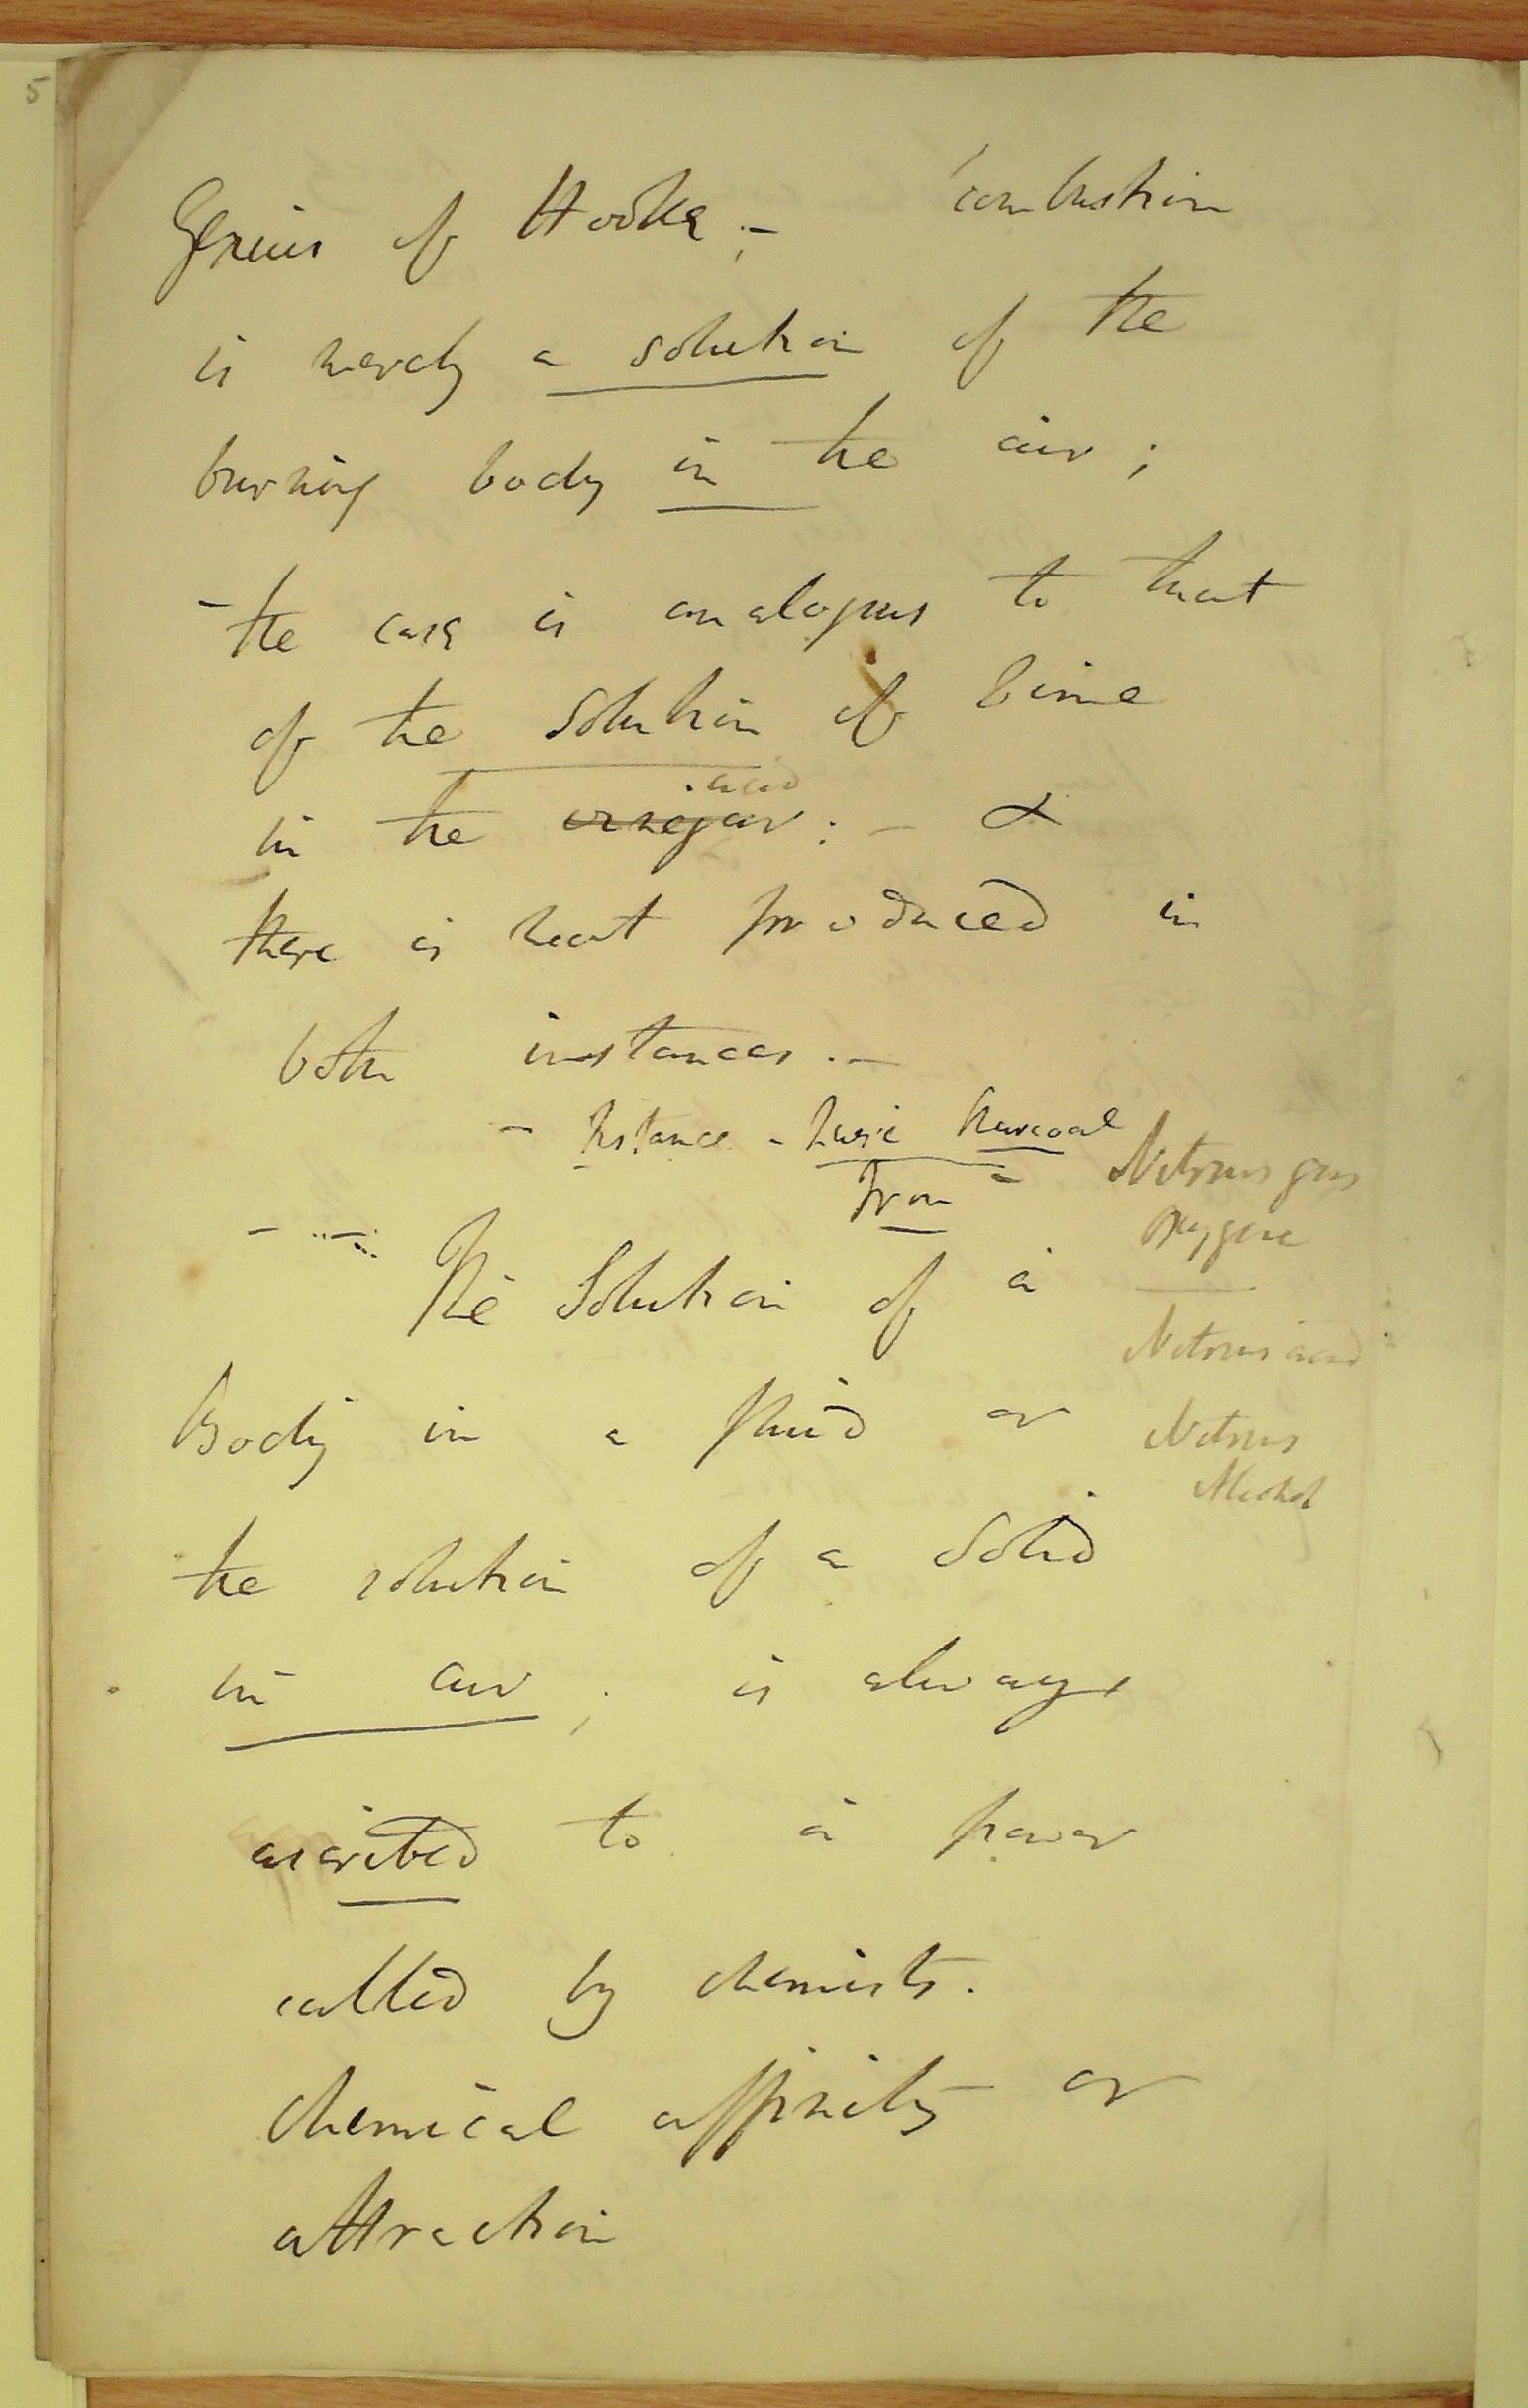 5
Genius of Hooke; - combustion
is merely a solution of the
burning body in the air;
- the case is analogous to that
of the solution of lime
acid
in the vinegar: - &
there is heat produced in
both instances. -
- Instance - Charcoal
Iron - Nitrous gas
Oxygene
The Solution of a
Nitrous acid
Body in a fluid or
Nitrous
Alcohol
the solution of a solid
in air; is always
ascribed to a power
called by chemists.
chemical affinity or
attraction